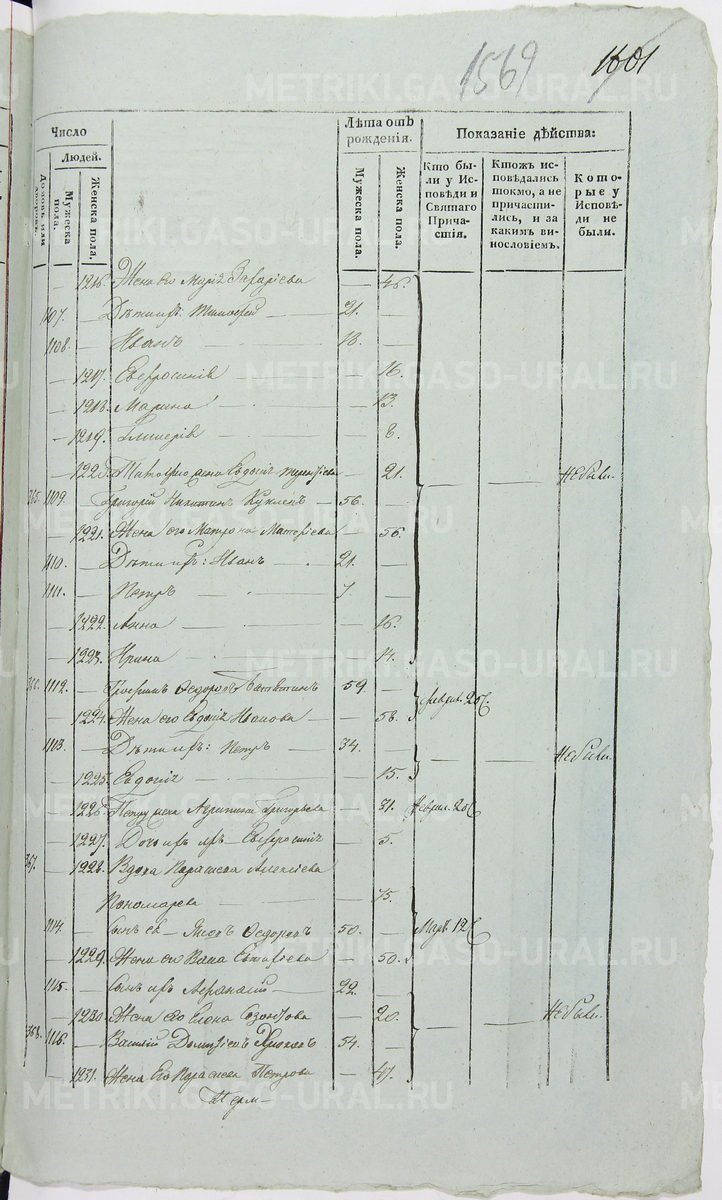 1569 1601
Число
Людей.
Домовъ или дворовъ.
Мужеска пола.
Женска пола.
Лѣта отъ рожденія.
Мужеска пола.
Женска пола.
Показаніе дѣйства:
Кто бы-
ли у Ис-
повѣди и
Святаго
Прича-
стія.
Ктожъ ис-
повѣдались
токмо, а не
причасти-
лись, и за
какимъ ви-
нословіемъ.
Кото-
рые у
Исповѣ-
ди не
были.
1216. Жена его Марія Захаріева — 46.
1107. — Дѣти ихъ: Тимофей — 21. —
1108. — Иванъ — 18. —
— 1217. Евфросинія — 16.
— 1218. Марина — 13.
— 1219. Гликерія — 8.
— 1220. жена Евдокія — 21. Не были.
365. 1109. Григорій Никитинъ — 56. —
— 1221. Жена его Матрона — 56.
1110. — Дѣти ихъ: Иванъ — 21. —
1111. — Петръ — 7. —
— 1222. Анна — 16.
— 1223. Ирина — 14.
366. 1112. — Ѳедоровъ 59 — Феврал. 20
— 1224. Жена его Евдокія Иванова — 58.
1113. — Дѣти ихъ: Петръ — 34. — Не были.
— 1225. Евдокія — 15.
— 1226. Петру жена Агрипина Григорьева — 31. Феврал. 20
— 1227. Дочь ихъ Евфросинія — 5.
367. — 1228. Вдова Параскева Алексіева
Пономарева — 75.
1114. — Сынъ ея Ѳедоровъ 50. — Мар. 12
— 1229. Жена его — 50.
1115. — Сынъ ихъ Афанасій — 22. —
— 1230. Жена его Елена — 20. Не были.
368. 1116. — Василій 54. —
— 1231. Жена Его Параскева Петрова — 47.
METRIKI.GASO-URAL.RU